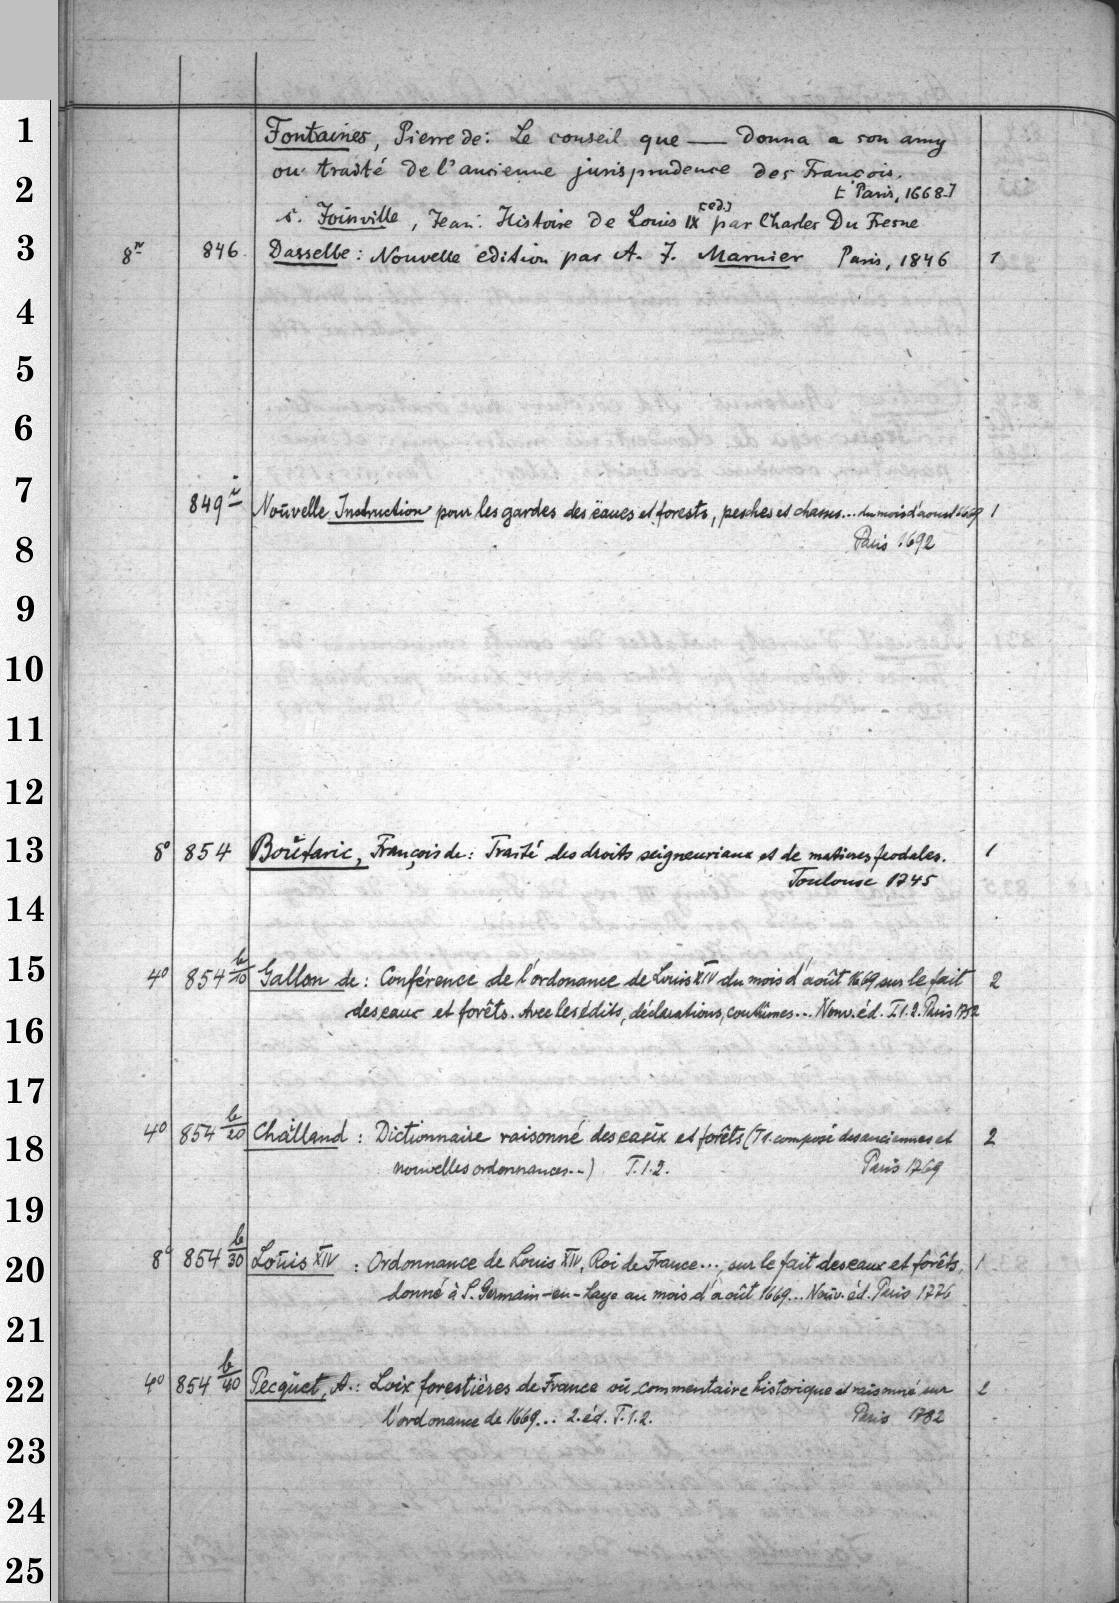 1 Fontaines, Pierre de: Le conseil que — donna a son amy
ou traité de l'ancienne jurisprudence des François.
2 [Paris, 1668.]
s. Joinville, Jean: Histoire de Louis IX [ed.] par Charles Du Fresne
3 8° 846. Dasselbe: Nouvelle édition par A. J. Marnier Paris, 1846 1
4
5
6
7 849 i Nouvelle Instruction pour les gardes des eaues et forests, pesches et chasses... du mois d'aoust 1669 1
8 Paris 1692
9
10
11
12
13 8° 854 Boutaric, François de: Traité des droits seigneuriaux et de matieres feodales. 1
Toulouse 1745
14
15 4° 854 b/10 Gallon de: Conférence de l'ordonance de Louis XIV du mois d'août 1669 sur le fait 2
des eaux et forêts. Avec les édits, déclarations, coutûmes... Nouv. éd. T.1.2. Paris 1752
16
17
18 4° 854 b/20 Chailland: Dictionnaire raisonné des eaux et forêts (T1. composé des anciennes et 2
nouvelles ordonnances...) T.1.2. Paris 1769
19
20 8° 854 b/30 Louis XIV: Ordonnance de Louis XIV, Roi de France..., sur le fait des eaux et forêts, 1
donné à S. Germain-en-Laye au mois d'août 1669... Nouv. éd. Paris 1776
21
22 4° 854 b/40 Pecquet, A.: Loix forestières de France ou commentaire historique et raisonné sur 2
l'ordonance de 1669... 2. éd. T.1.2. Paris 1782
23
24
25